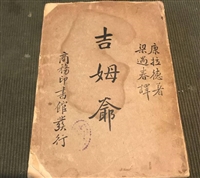 康拉德著
梁遇春譯
吉姆爺
商務印書館發行